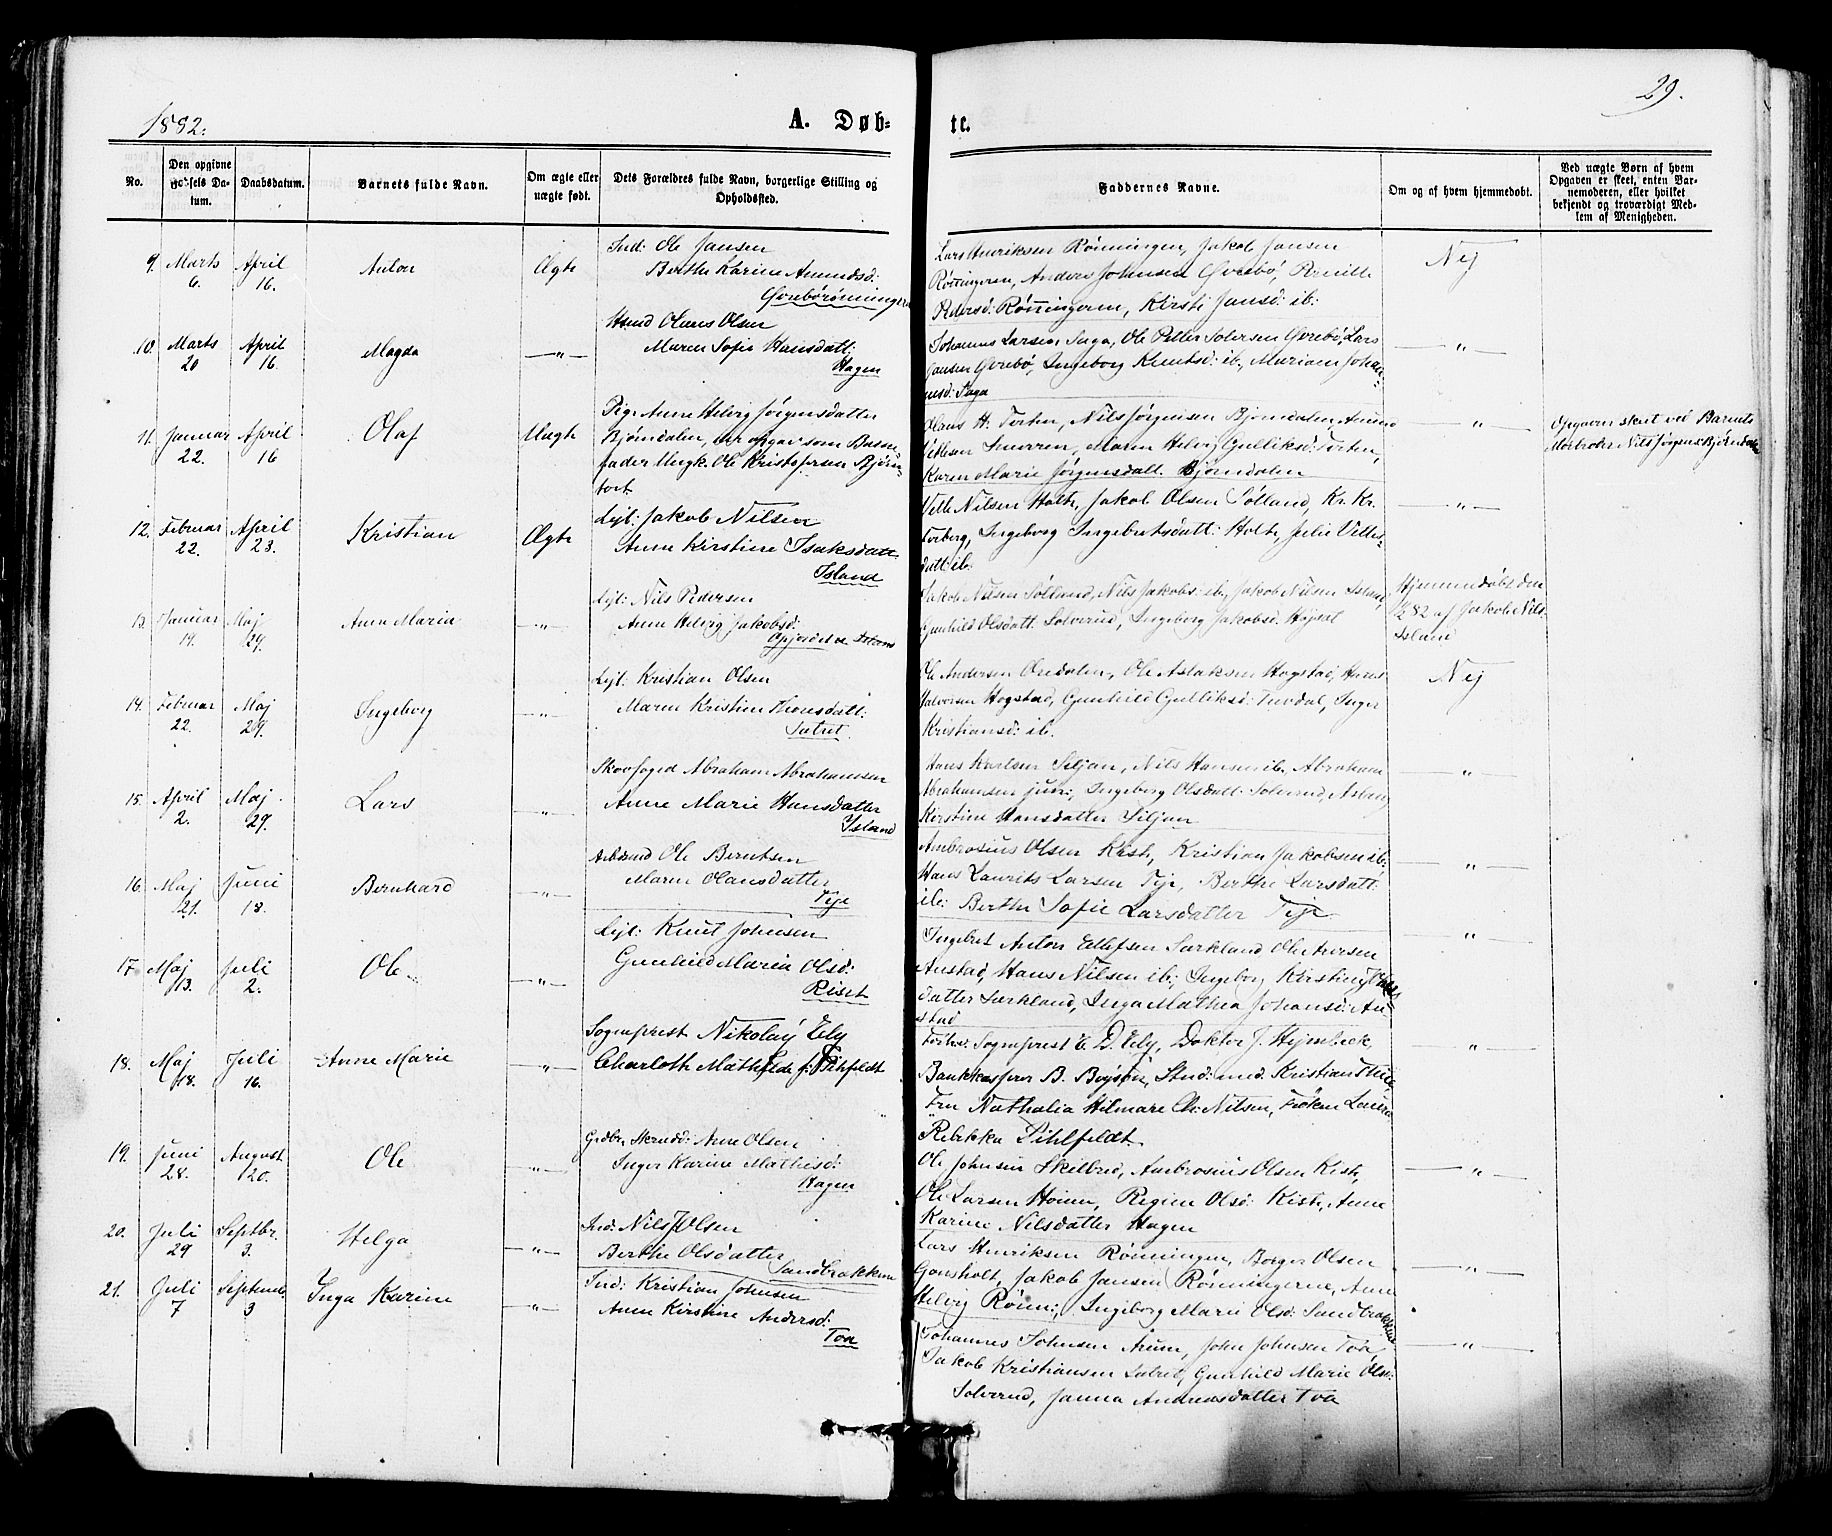 1882.
A. Døb-
te.
29.
No.
Den opgivne Fødsels Datum.
Daabsdatum.
Barnets fulde Navn.
Om ægte eller uægte født.
Dets Forældres fulde Navn, borgerlige Stilling og Opholdssted.
Faddernes Navne.
Om og af hvem hjemmedøbt.
Ved uægte Børn af hvem Opgaven er skeet, enten Barnemoderen, eller hvilket bekjendt og troværdigt Medlem af Menigheden.
9. Marts 6. April 16. Anton Ægte
Ind: Ole Jansen
Berthe Karine Amundsd:
Øvrebørönningen
Lars Henriksen Rönningen, Jakob Jansen
Röningeren, Anders Johnsen Øvrebö, Pernille
Pedersd: Röningerne, Kirsti Jansd: ib:
Nej
10. Marts 20 April 16. Magda —"—
Hsmd Olaves Olsen
Maren Sofie Hansdatt:
Hagen
Johannes Larsen Saga, Ole Petter Solvesen Øvrebö, Lars
Jansen Øvrebö, Ingeborg Knutsd: ib., Mariam Johan-
nesd: Saga
—"—
11. Januar 22. April 16 Olaf Uægte
Pige Anne Helvig Jörgensdatter
Björndalen, der opgav som Barne-
fader Ungk. Ole Kristofersen Björn-
tvet
Olaus H. Torten, Nils Jörgensen Björndalen, Amund
Snerren, Maren Helvig Gulliksd: Torten,
Karen Marie Jörgensdatt. Björndalen
—"—
Opgaven skeet ved Barnets
Morbroder Nils Jörgens: Björndalen
12. Februar 22. April 23. Kristian Ægte
Lejl: Jakob Nilsen
Anne Kirstine Isaksdatt.
Island
Velle Nilsen Holte, Jakob Olsen Sölland, Kr. Kr.
Torberg, Ingeborg Ingebretsdatt: Holte, Julie Velles-
datt: ib:
—"—
13. Januar 14. Maj 29. Anne Maria —"—
Lejl: Nils Pedersen
Anne Helvig Jakobsd:
Island
Jakob Nilsen Sölland, Nils Jakobs: ib., Jakob Nilsen Island,
Gunhild Olsdatt: Solverud, Ingeborg Jakobsd: Höjset
Hjemmedöbt den
82 af Jakob Nils.
Island
14. Februar 22. Maj 29. Ingeborg —"—
Lejl: Kristian Olsen
Maren Kristine Thorsdatt:
Sætret.
Ole Andersen Øredalen, Ole Aslaksen Hogstad, Hans
Halvorsen Hogstad, Gunhild Gulliksd: Tuvdal, Inger
Kristiansd: ib.
Nej
15. April 2. Maj 29. Lars —"—
Skovfoged Abraham Abrahamsen
Anne Marie Hansdatter
Island
Hans Karlsen Siljan, Nils Hansen ib., Abraham
Abrahamsen jun:, Ingeborg Olsdatt: Solverud,
Kirstine Hansdatter Siljan
"
16. Maj 21. Juni 18. Bernhard —"—
Arbsmd Ole Berntsen
Maren Olausdatter
Teje
Ambrosius Olsen Kiste, Kristian Jakobsen ib:
Hans Laurits Larsen Teje, Berthe Larsdatt:
ib: Berthe Sofie Larsdatter Teje.
—"—
17. Maj 13. Juli 2. Ole —"—
Lejl: Knut Johnsen
Gunhild Maria Olsd:
Riset
Ingebret Anton Ellefsen Særkland, Ole Andersen
Austad, Hans Nilsen ib:, Ingeborg Kirstine
datter Særkland, Inga Mathea Johansd: Au-
stad
"
18. Maj 18. Juli 16. Anne Marie —"—
Sogneprest Nikolaÿ Ely
Charlothe Mathilde f: Pihlfeldt
Sogneprest E. D. Ely, Doktor J. Hjembæk,
Bankkasserer B. Boyson, Stud: med. Kristian Thue,
Fru Nathalia Hilmare Chr: Nilsen, Fröken Laura
Rebekka Pihlfeldt
—"—
19. Juni 28. August 20. Ole —"—
Gdbr. Anne Olsen
Inger Karine Mathisd:
Hagen
Ole Johnsen Skilbred, Ambrosius Olsen Kiste,
Ole Larsen Moine, Regine Olsd: Kiste, Anne
Karine Nilsdatter Hagen
—"—
20. Juli 29 Septbr. 3. Helga —"—
Ind: Nils J Olsen
Berthe Olsdatter
Sandbrækkene
Lars Henriksen Rönningen, Borger Olsen
Gonsholt, Jakob Jansen Rönningerne, Anne
Helvig Rönn:, Ingeborg Marie Olsd: Sandbrækkene
—"—
21. Juli 7 Septemb. 3 Inga Karine —"—
Ind: Kristian Johnsen
Anne Kirstine Andersd:
Toa
Johannes Johnsen Aum, John Johnsen Toa
Jakob Kristiansen Sætret, Gunhild Marie Olsd:
Solverud, Janna Andreasdatter Toa
—"—